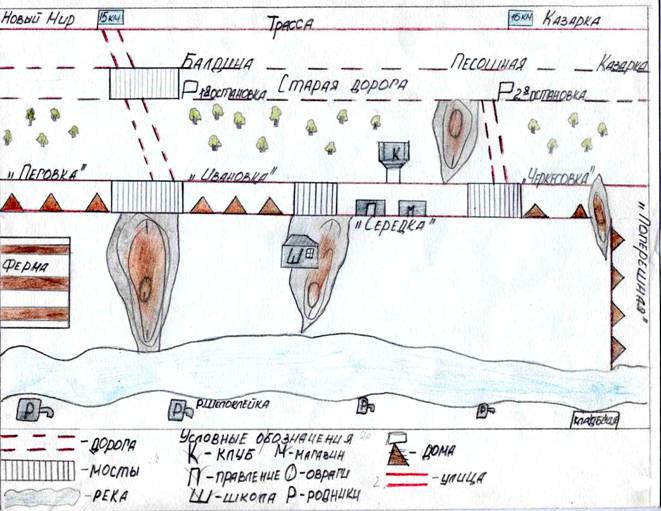 Новый Мир
15 км
Трасса
16 км
Казарка
Балдина
Песошная
Казарка
Р 1ая остановка
Старая дорога
Р 2ая остановка
К
„Пеговка"
„Ивановка"
„Черкесовка"
П
М
„Середка"
„Поперешная"
Ш
Ферма
Р
Р
Р. Шепоклейка
Р
Р
Кладбище
Условные обозначения
- дорога
- мосты
- река
К - клуб
П - правление
Ш - школа
М - магазин
- овраги
Р - родники
- дома
- улица